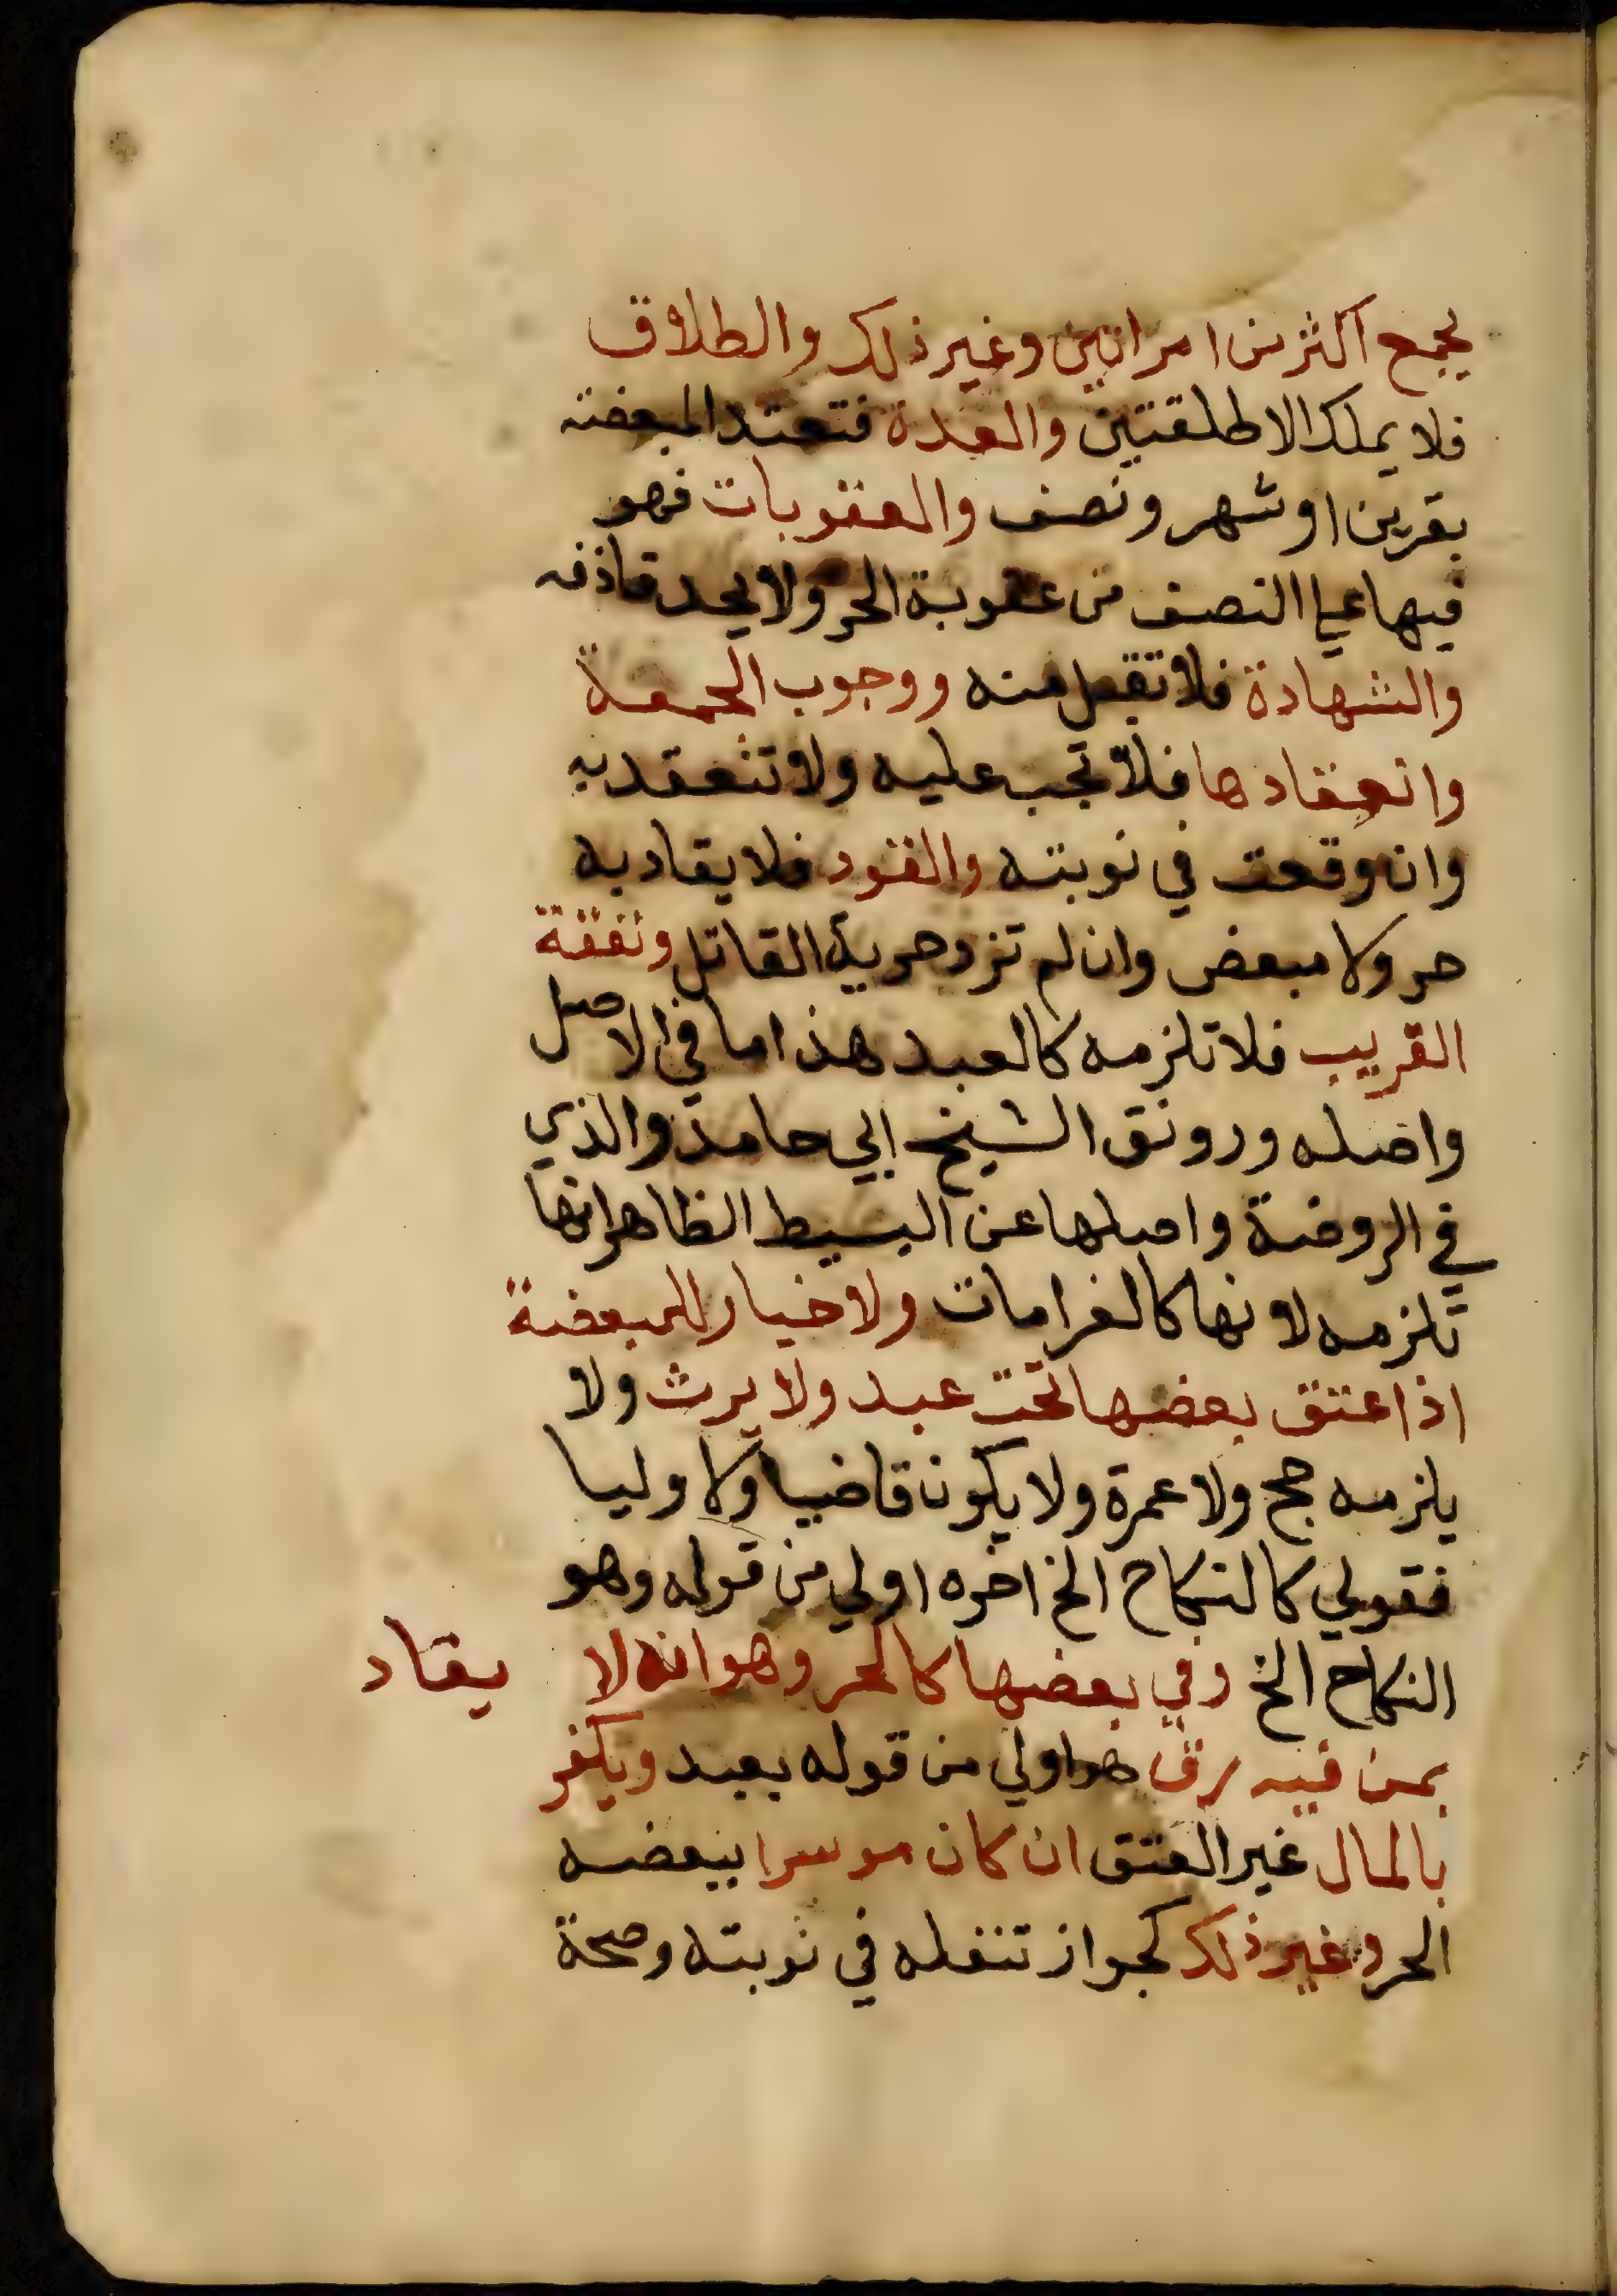 يجمع اكثر من امراتين وغير ذلك والطلاق
فلا يملك الا طلقتين والعدة فتعتد المبعضة
بقرين او شهر ونصف والعقوبات فهو
فيها على النصف من عقوبة الحر ولا يحد قاذفه
والشهادة فلا تقبل منه ووجوب الجمعة
وانعقادها فلا تجب عليه ولا تنعقد به
وان وقعت في نوبته والقود فلا يقاد به
حر ولا مبعض وان لم تزد حرية القاتل ونفقة
القريب فلا تلزمه كالعبد هذا ما في الاصل
واصله ورونق الشيخ ابي حامد والذي
في الروضة واصلها عن البسيط الظاهر انها
تلزمه لانها كالغرامات ولا خيار للمبعضة
اذا عتق بعضها تحت عبد ولا يرث ولا
يلزمه حج ولا عمرة ولا يكون قاضيا ولا وليا
فقولي كالنكاح الخ اخره اولي من قوله وهو
النكاح الخ وفي بعضها كالحر وهو انه لا يقاد
بمن فيه رق هو اولي من قوله بعبد ويكفر
بالمال غير العتق ان كان موسرا ببعضه
الحر وغير ذلك كجواز تنفله في نوبته وصحة